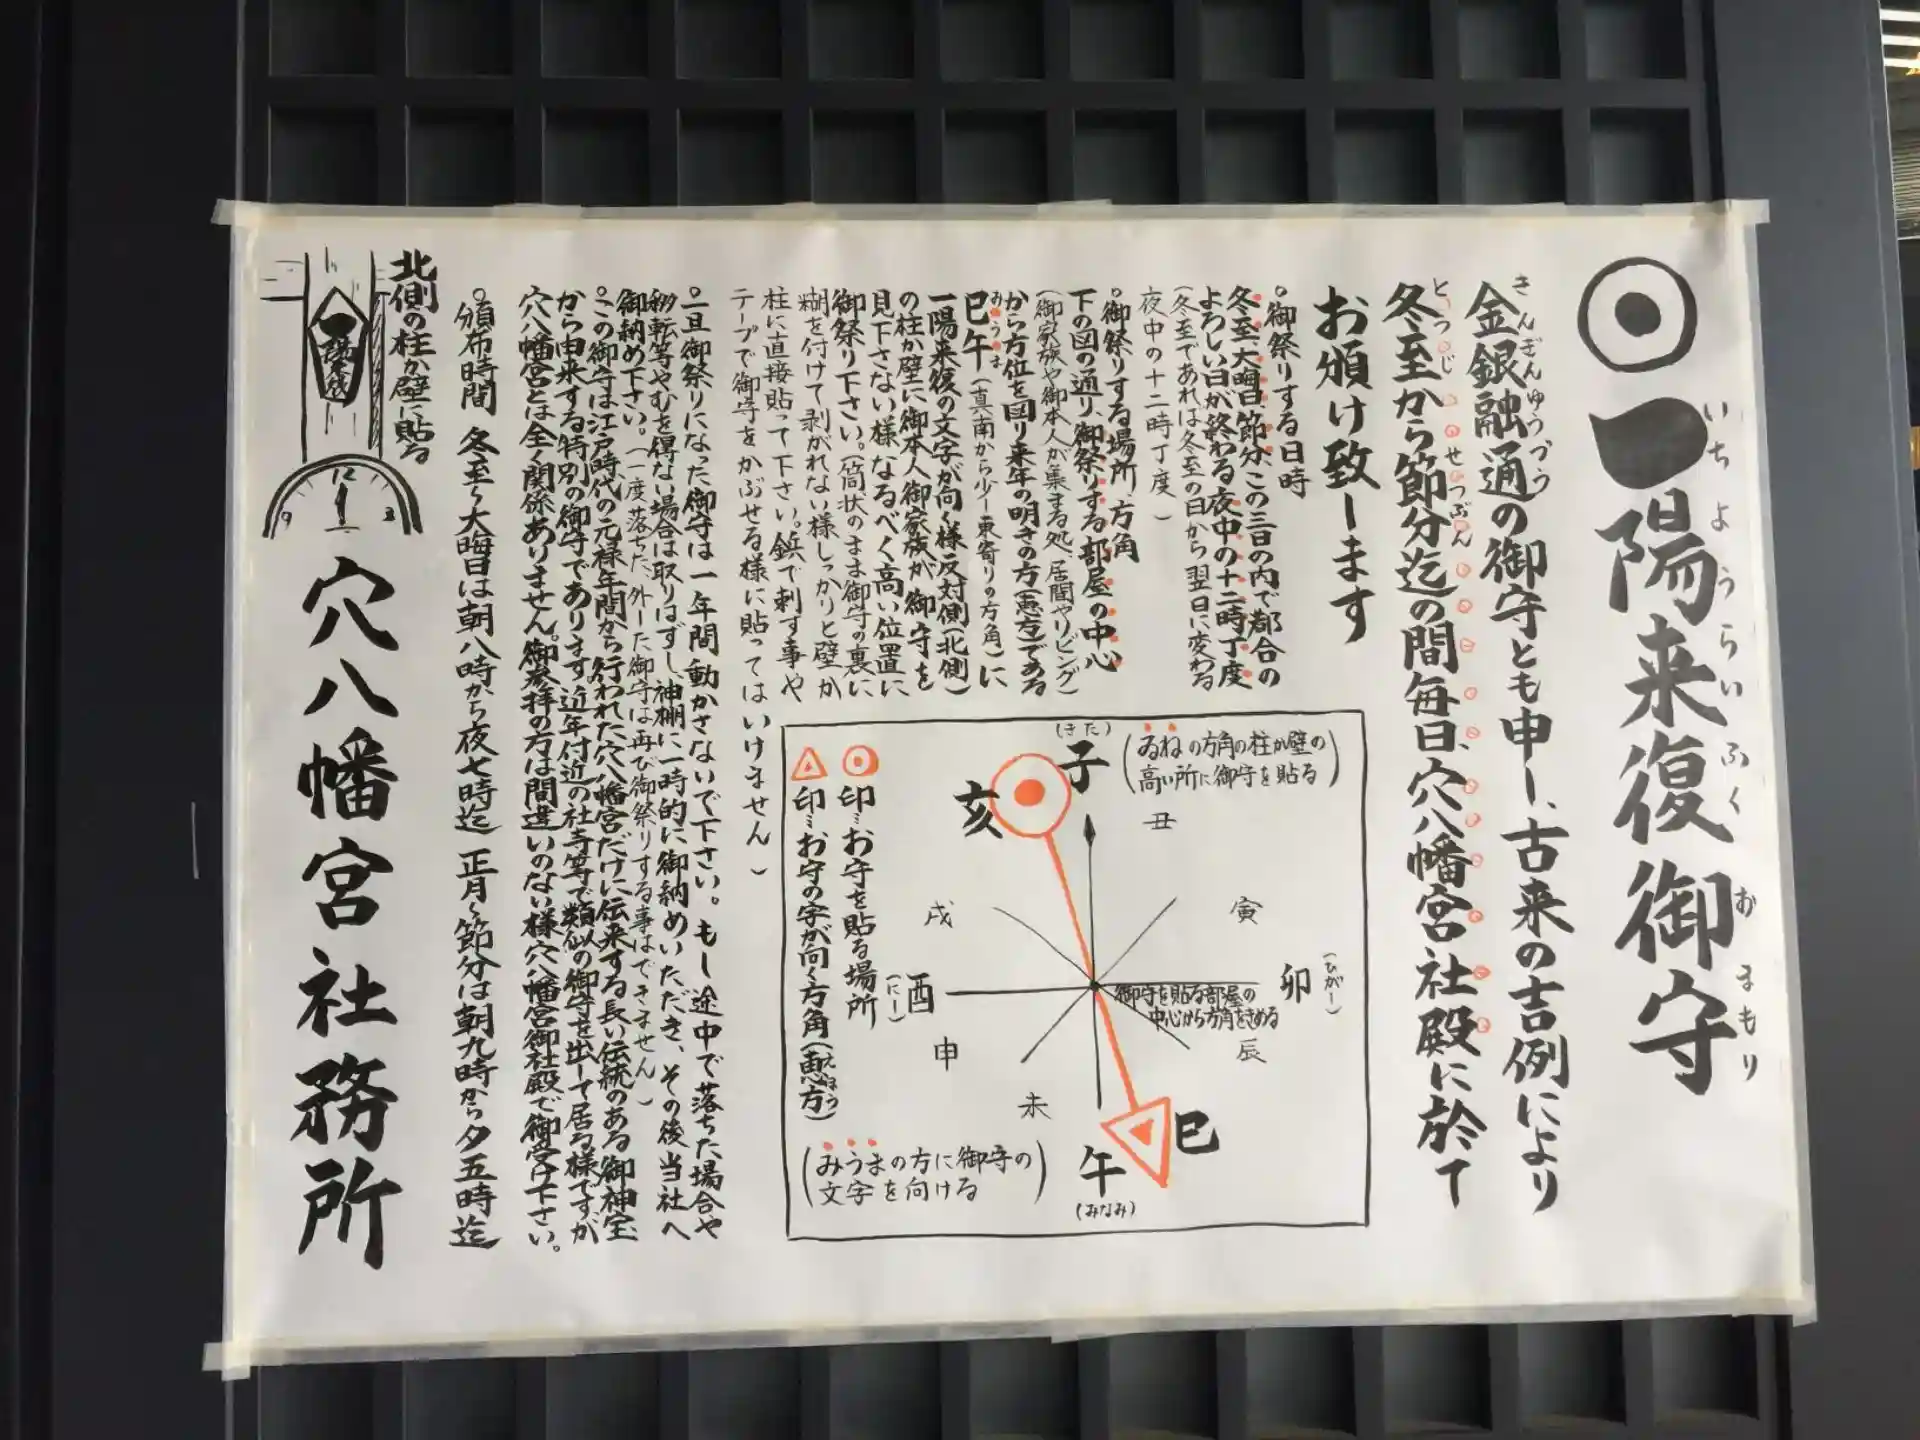 一陽来復御守
いちようらいふくおまもり
金銀融通の御守とも申し、古来の吉例により
きんぎんゆうづう
冬至から節分迄の間毎日、穴八幡宮社殿に於て
とうじ
せつぶん
お頒け致します
○御祭りする日時
冬至、大晦日、節分、この三日の内で都合の
よろしい日が終わる夜中の十二時丁度
(冬至であれば冬至の日から翌日に変わる
夜中の十二時丁度)
○御祭りする場所、方角
下の図の通り、御祭りする部屋の中心
(御家族や御本人が集まる処、居間やリビング)
から方位を図り来年の明きの方(恵方)である
巳午(真南から少し東寄りの方角)に
みうま
一陽来復の文字が向く様反対側(北側)
の柱か壁に御本人御家族が御守を
見下さない様なるべく高い位置に
御祭り下さい。(筒状のまま御守の裏に
糊を付けて剥がれない様しっかりと壁か
柱に直接貼って下さい。鋲で刺す事や
テープで御守をかぶせる様に貼ってはいけません)
○一旦御祭りになった御守は一年間動かさないで下さい。もし途中で落ちた場合や
移転等やむを得ない場合は取りはずし、神棚に一時的に御納めいただき、その後当社へ
御納め下さい。(一度落ちた、外した御守は再び御祭りする事はできません)
○この御守は江戸時代の元禄年間から行われた穴八幡宮だけに伝来する長い伝統のある御神宝
から由来する特別の御守であります。近年付近の社寺等で類似の御守を出して居る様ですが
穴八幡宮とは全く関係ありません。御参拝の方は間違いのない様穴八幡宮御社殿で御受け下さい。
○頒布時間 冬至〜大晦日は朝八時から夜七時迄 正月〜節分は朝九時から夕五時迄
北側の柱か壁に貼る
一陽来復
12
9
3
穴八幡宮社務所
(きた)
子
(ゐねの方角の柱か壁の
高い所に御守を貼る)
亥
丑
寅
戌
(ひがし)
卯
(にし)
酉
御守を貼る部屋の
中心から方角をきめる
辰
申
未
巳
午
(みなみ)
印…お守を貼る場所
印…お守の字が向く方角(恵方)
えほう
(みうまの方に御守の
文字を向ける)